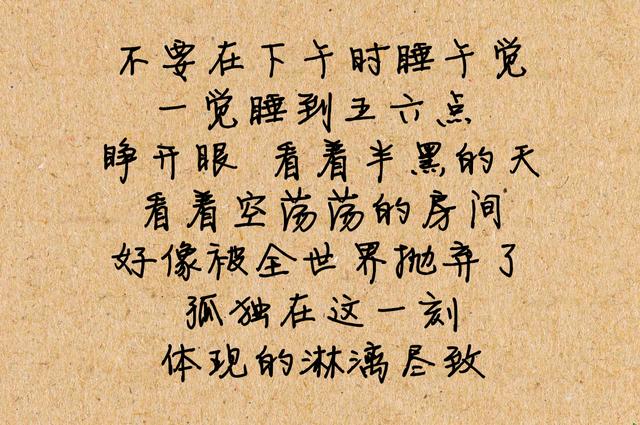 不要在下午时睡午觉
一觉睡到五六点
睁开眼 看着半黑的天
看着空荡荡的房间
好像被全世界抛弃了
孤独在这一刻
体现的淋漓尽致